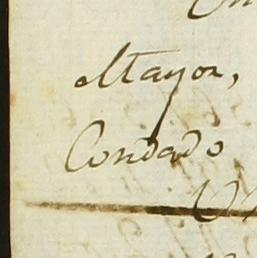 Mayor,
Condado